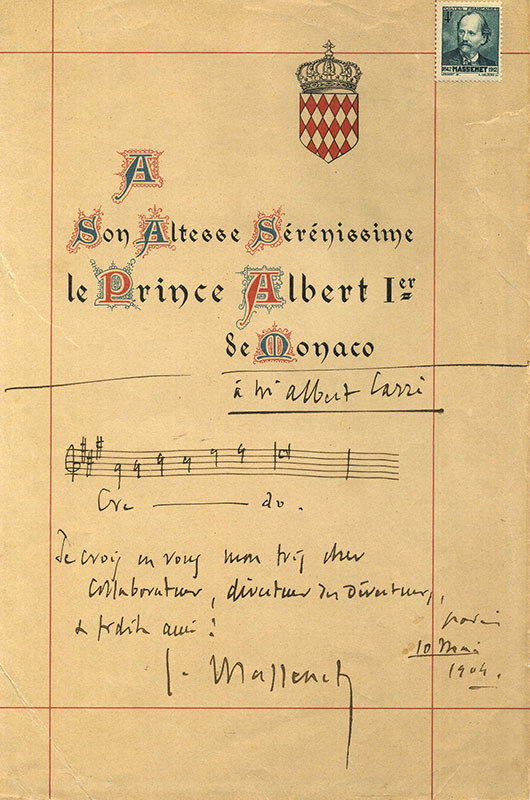 POSTES FRANÇAISES
4F
1842 MASSENET 1912
A
Son Altesse Sérénissime
le Prince Albert Ier
de Monaco
à Mr Albert Carré
Cre do.
Je crois en vous mon très cher
Collaborateur, directeur des Directeurs,
&  ami!
paris
10 Mai
1904.
J. Massenet